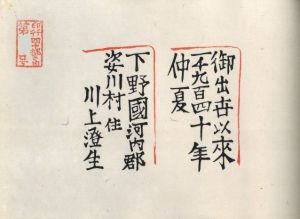 御出生以來
一千九百四十年
仲夏
下野國河內郡
姿川村住
川上澄生